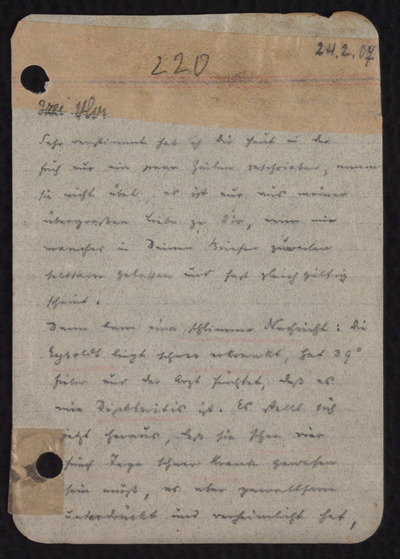 220
24.2.07
zwei Uhr
Sehr verstimmt hab ich Dir heut in der
früh nur ein paar Zeilen geschrieben, nimm
sie nicht übel, es ist nur aus meiner
übergroßen Liebe zu Dir, wenn mir
manches in Deinen Briefen zuweilen
seltsam gelassen und fast gleichgiltig
scheint.
Dann kam eine schlimme Nachricht: Die
Eysoldt liegt schwer erkrankt, hat 39°
Fieber und der Arzt fürchtet, daß es
eine Diphtheritis ist. Es stellt sich
jetzt heraus, daß sie schon vier
fünf Tage schwer krank gewesen
sein muß, es aber gewaltsam
unterdrückt und verheimlicht hat,